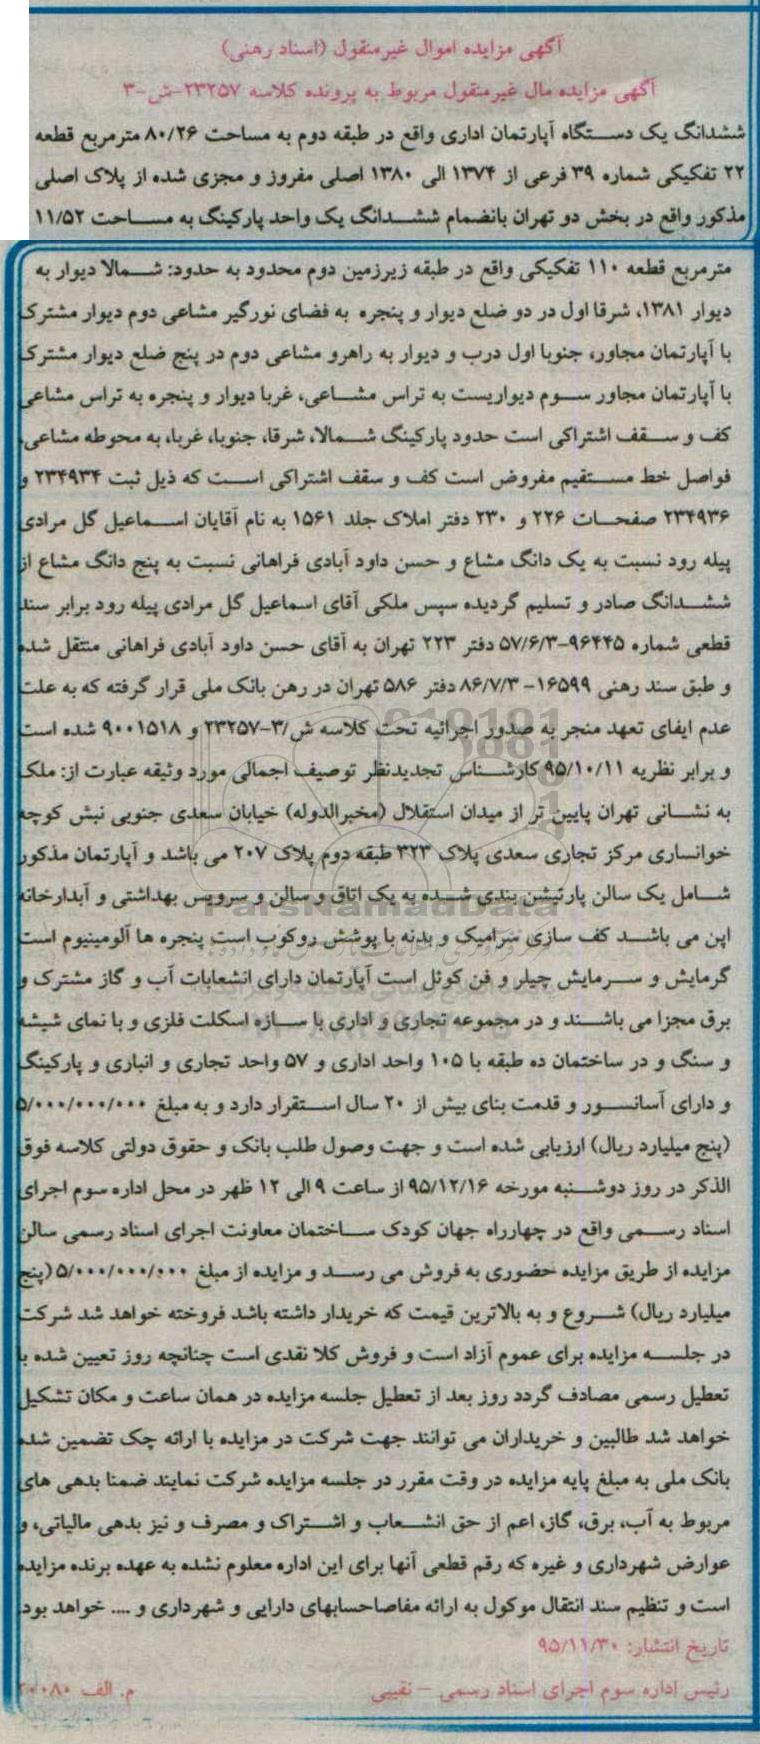 آگهی مزایده اموال غیرمنقول (اسناد رهنی)
آگهی مزایده مال غیرمنقول مربوط به پرونده کلاسه ۲۳۲۵۷-ش-۳
ششدانگ یک دستگاه آپارتمان اداری واقع در طبقه دوم به مساحت ۸۰/۲۶ مترمربع قطعه
۲۲ تفکیکی شماره ۳۹ فرعی از ۱۳۷۴ الی ۱۳۸۰ اصلی مفروز و مجزی شده از پلاک اصلی
مذکور واقع در بخش دو تهران بانضمام ششدانگ یک واحد پارکینگ به مساحت ۱۱/۵۲
مترمربع قطعه ۱۱۰ تفکیکی واقع در طبقه زیرزمین دوم محدود به حدود: شمالا دیوار به
دیوار ۱۳۸۱، شرقا اول در دو ضلع دیوار و پنجره به فضای نورگیر مشاعی دوم دیوار مشترک
با آپارتمان مجاور، جنوبا اول درب و دیوار به راهرو مشاعی دوم در پنج ضلع دیوار مشترک
با آپارتمان مجاور سوم دیواریست به تراس مشاعی، غربا دیوار و پنجره به تراس مشاعی
کف و سقف اشتراکی است حدود پارکینگ شمالا، شرقا، جنوبا، غربا، به محوطه مشاعی،
فواصل خط مستقیم مفروض است کف و سقف اشتراکی است که ذیل ثبت ۲۳۴۹۳۴ و
۲۳۴۹۳۶ صفحات ۲۲۶ و ۲۳۰ دفتر املاک جلد ۱۵۶۱ به نام آقایان اسماعیل گل مرادی
پیله رود نسبت به یک دانگ مشاع و حسن داود آبادی فراهانی نسبت به پنج دانگ مشاع از
ششدانگ صادر و تسلیم گردیده سپس ملکی آقای اسماعیل گل مرادی پیله رود برابر سند
قطعی شماره ۹۶۴۴۵-۵۷/۶/۳ دفتر ۲۲۳ تهران به آقای حسن داود آبادی فراهانی منتقل شده
و طبق سند رهنی ۱۶۵۹۹- ۸۶/۷/۳ دفتر ۵۸۶ تهران در رهن بانک ملی قرار گرفته که به علت
عدم ایفای تعهد منجر به صدور اجرائیه تحت کلاسه ش/۳-۲۳۲۵۷ و ۹۰۰۱۵۱۸ شده است
و برابر نظریه ۹۵/۱۰/۱۱ کارشناس تجدیدنظر توصیف اجمالی مورد وثیقه عبارت از: ملک
به نشانی تهران پایین تر از میدان استقلال (مخبرالدوله) خیابان سعدی جنوبی نبش کوچه
خوانساری مرکز تجاری سعدی پلاک ۳۲۳ طبقه دوم پلاک ۲۰۷ می باشد و آپارتمان مذکور
شامل یک سالن پارتیشن بندی شده به یک اتاق و سالن و سرویس بهداشتی و آبدارخانه
اپن می باشد کف سازی سرامیک و بدنه با پوشش روکوب است پنجره ها آلومینیوم است
گرمایش و سرمایش چیلر و فن کوئل است آپارتمان دارای انشعابات آب و گاز مشترک و
برق مجزا می باشند و در مجموعه تجاری و اداری با سازه اسکلت فلزی و با نمای شیشه
و سنگ و در ساختمان ده طبقه با ۱۰۵ واحد اداری و ۵۷ واحد تجاری و انباری و پارکینگ
و دارای آسانسور و قدمت بنای بیش از ۲۰ سال استقرار دارد و به مبلغ ۵/۰۰۰/۰۰۰/۰۰۰
(پنج میلیارد ریال) ارزیابی شده است و جهت وصول طلب بانک و حقوق دولتی کلاسه فوق
الذکر در روز دوشنبه مورخه ۹۵/۱۲/۱۶ از ساعت ۹ الی ۱۲ ظهر در محل اداره سوم اجرای
اسناد رسمی واقع در چهارراه جهان کودک ساختمان معاونت اجرای اسناد رسمی سالن
مزایده از طریق مزایده حضوری به فروش می رسد و مزایده از مبلغ ۵/۰۰۰/۰۰۰/۰۰۰ (پنج
میلیارد ریال) شروع و به بالاترین قیمت که خریدار داشته باشد فروخته خواهد شد شرکت
در جلسه مزایده برای عموم آزاد است و فروش کلا نقدی است چنانچه روز تعیین شده با
تعطیل رسمی مصادف گردد روز بعد از تعطیل جلسه مزایده در همان ساعت و مکان تشکیل
خواهد شد طالبین و خریداران می توانند جهت شرکت در مزایده با ارائه چک تضمین شده
بانک ملی به مبلغ پایه مزایده در وقت مقرر در جلسه مزایده شرکت نمایند ضمنا بدهی های
مربوط به آب، برق، گاز، اعم از حق انشعاب و اشتراک و مصرف و نیز بدهی مالیاتی، و
عوارض شهرداری و غیره که رقم قطعی آنها برای این اداره معلوم نشده به عهده برنده مزایده
است و تنظیم سند انتقال موکول به ارائه مفاصاحسابهای دارایی و شهرداری و .... خواهد بود.
تاریخ انتشار: ۹۵/۱۱/۳۰
رئیس اداره سوم اجرای اسناد رسمی – نقیبی
م. الف ۲۰۰۸۰
ParsNamadData